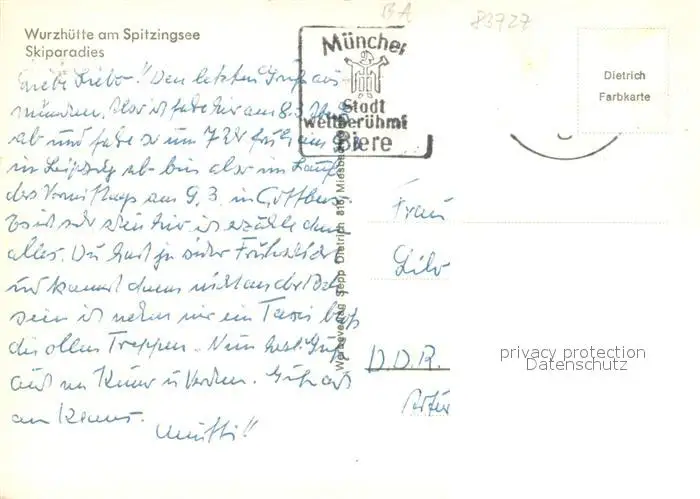 Wurzhütte am Spitzingsee
Skiparadies
BA
83727
München
Stadt
weltberühmt
Biere
Dietrich
Farbkarte
Liebe Lilo! Den letzten Gruß aus
München. Also ich fahre hier am 8.3.
ab und fahre so um 7 Uhr früh am 9.
in Leipzig ab bin also im Laufe
des Vormittags am 9.3. in Cottbus.
Es ist sehr schön hier ich erzähle dann
alles. Du hast ja sicher Frühschicht
und kannst dann nicht an der Bahn
sein ich nehme mir ein Taxi bloß
die ollen Treppen. Nun herzl. Grüße
auch an
an
Mutti!!
Werbeverlag Sepp Dietrich 816 Miesbach
Frau
Lilo
D.D.R.
privacy protection
Datenschutz